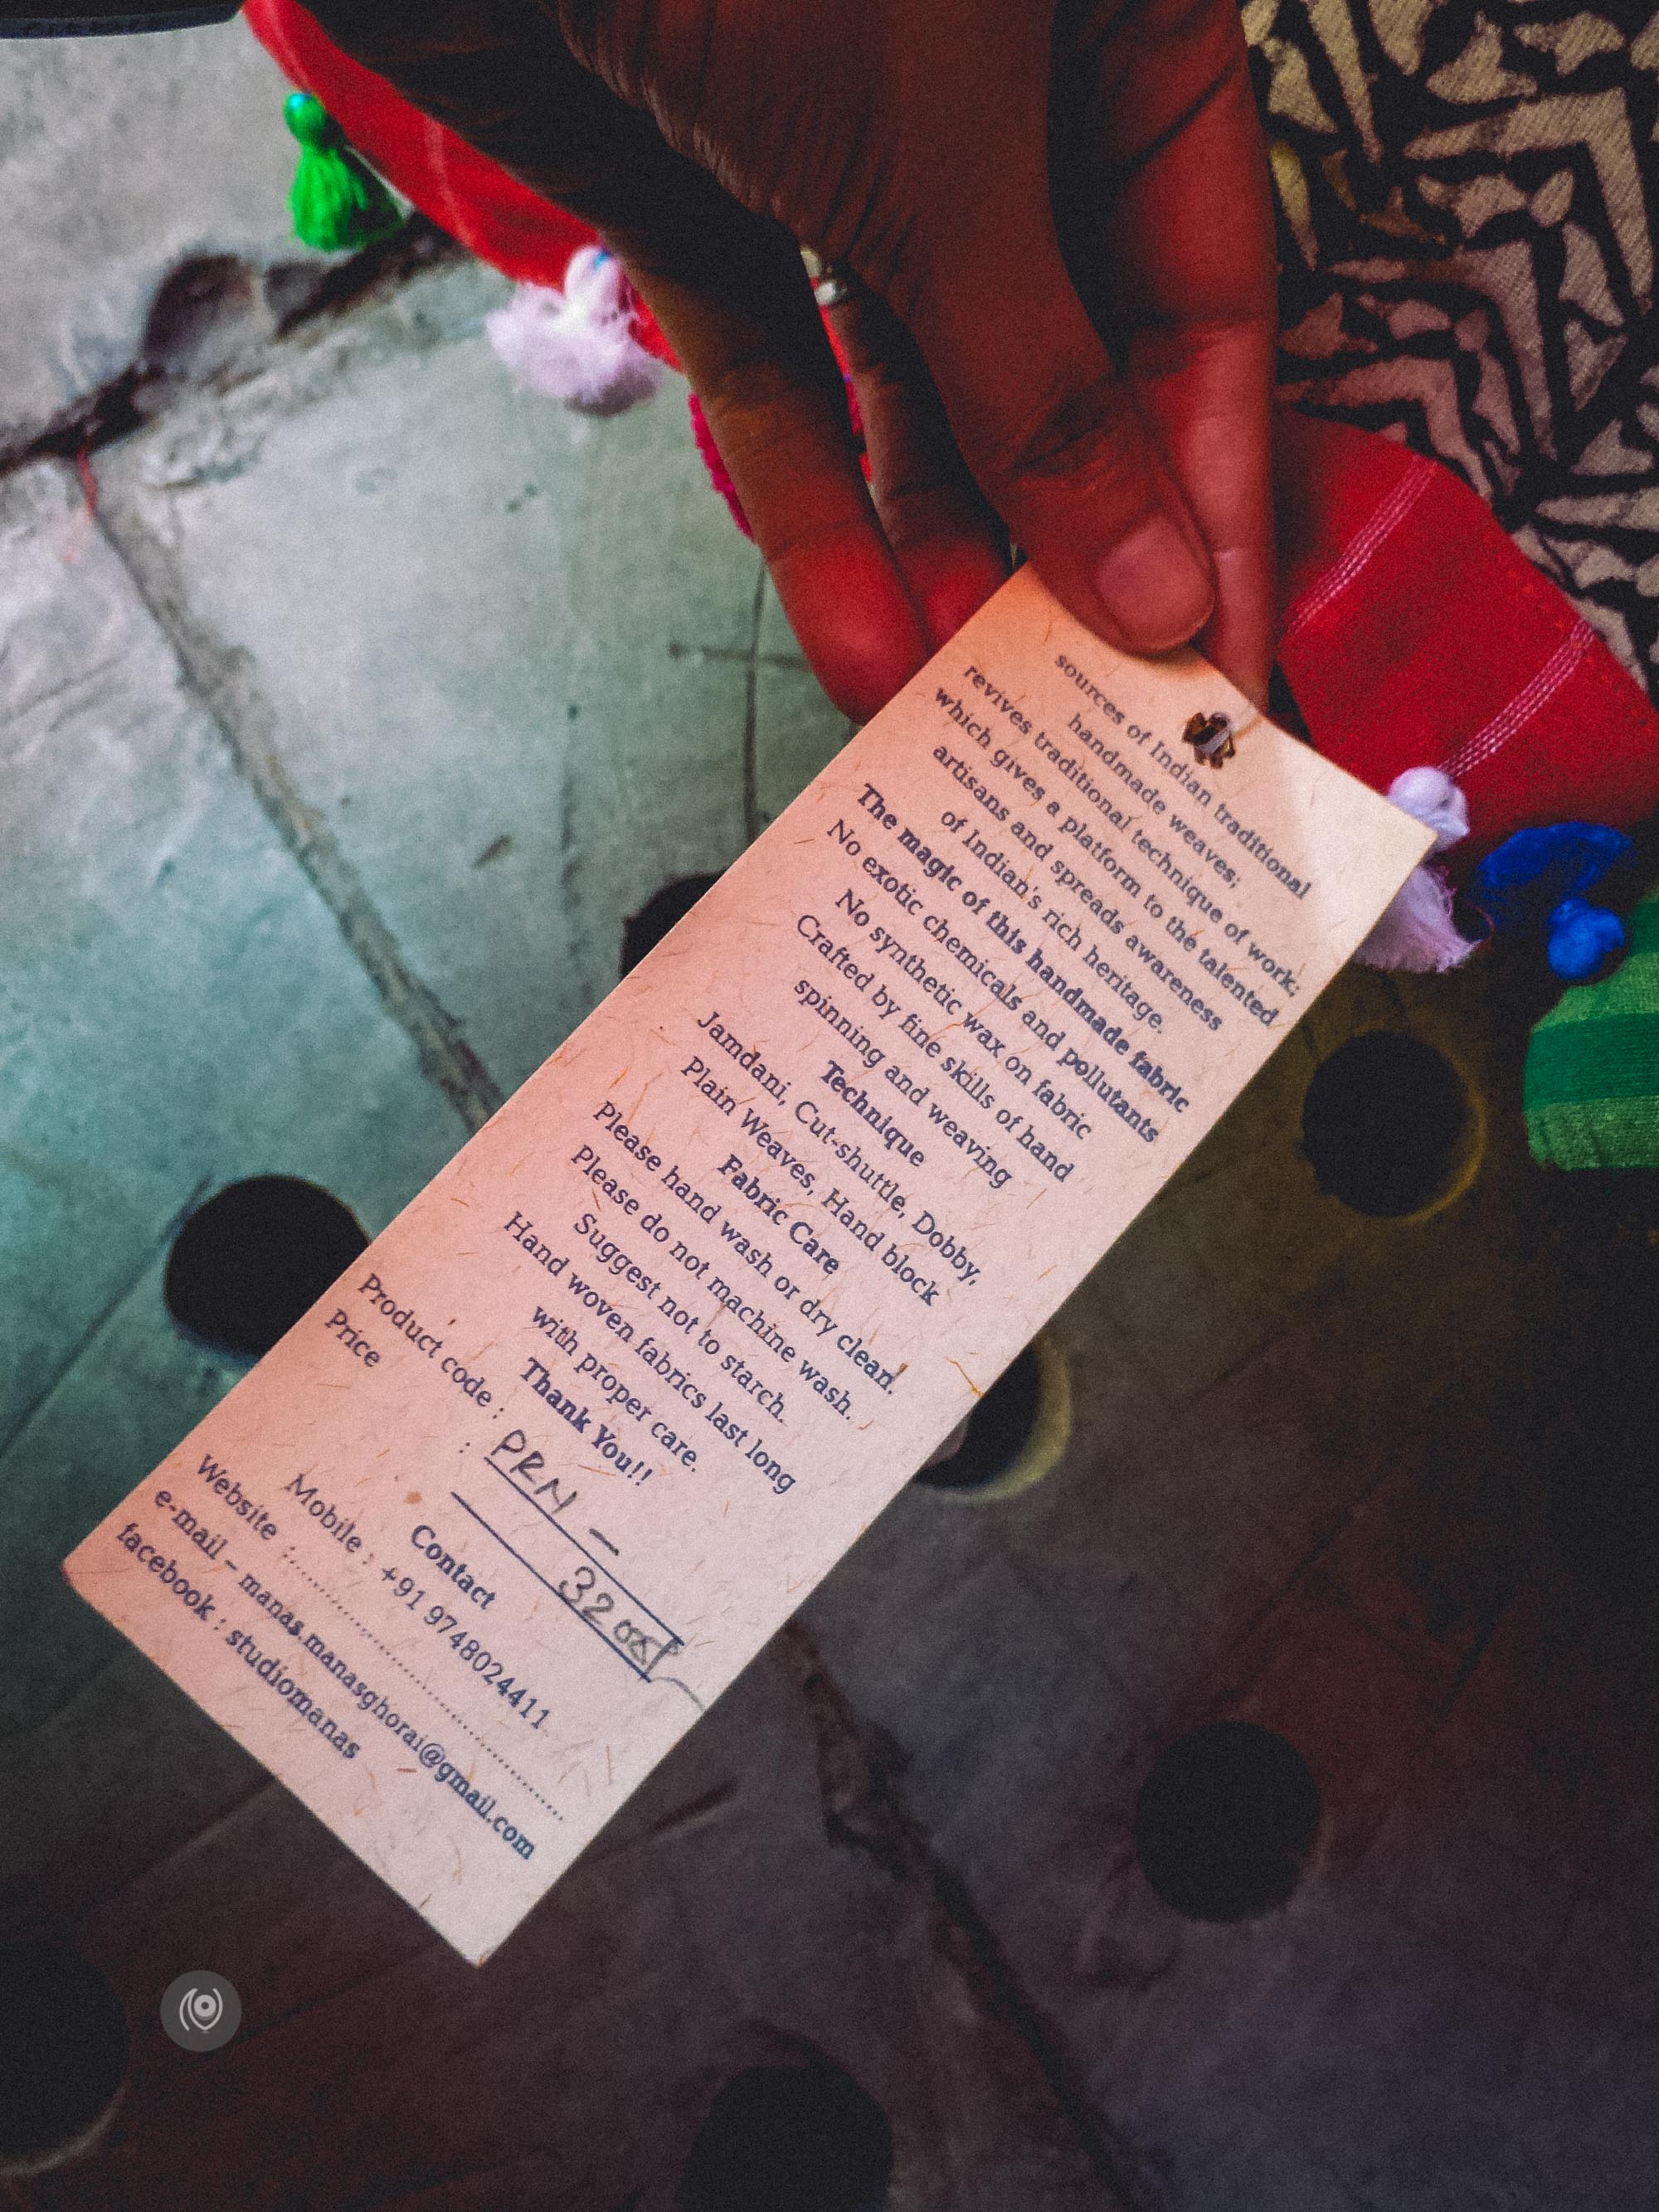 sources of Indian traditional
handmade weaves;
revives traditional technique of work;
which gives a platform to the talented
artisans and spreads awareness
of Indian's rich heritage.
The magic of this handmade fabric
No exotic chemicals and pollutants
No synthetic wax on fabric
Crafted by fine skills of hand
spinning and weaving
Technique
Jamdani, Cut-shuttle, Dobby,
Plain Weaves, Hand block
Fabric Care
Please hand wash or dry clean.
Please do not machine wash.
Suggest not to starch.
Hand woven fabrics last long
with proper care.
Thank You!!
Product code : PRN –
Price :
Contact
Mobile : +91 9748024411
Website :
e-mail – manas.manasghorai@gmail.com
facebook : studiomanas